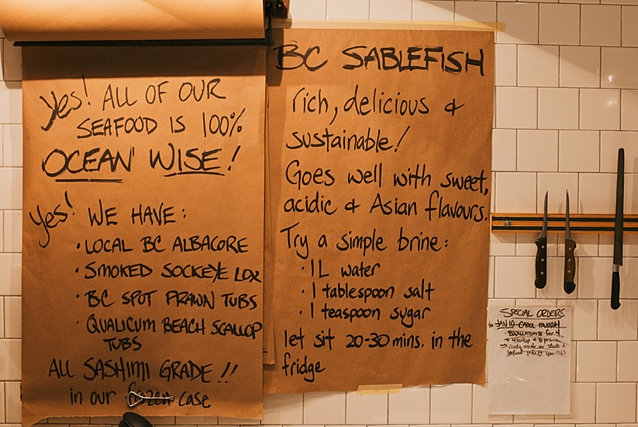 Yes! ALL OF OUR
SEAFOOD IS 100%
OCEAN WISE!
Yes! WE HAVE:
• LOCAL BC ALBACORE
• SMOKED SOCKEYE LOX
• BC SPOT PRAWN TUBS
• QUALICUM BEACH SCALLOP
TUBS
ALL SASHIMI GRADE!!
in our case
BC SABLEFISH
rich, delicious &
sustainable!
Goes well with sweet,
acidic & Asian flavours.
Try a simple brine:
• 1L water
• 1 tablespoon salt
• 1 teaspoon sugar
let sit 20-30 mins. in the
fridge
SPECIAL ORDERS